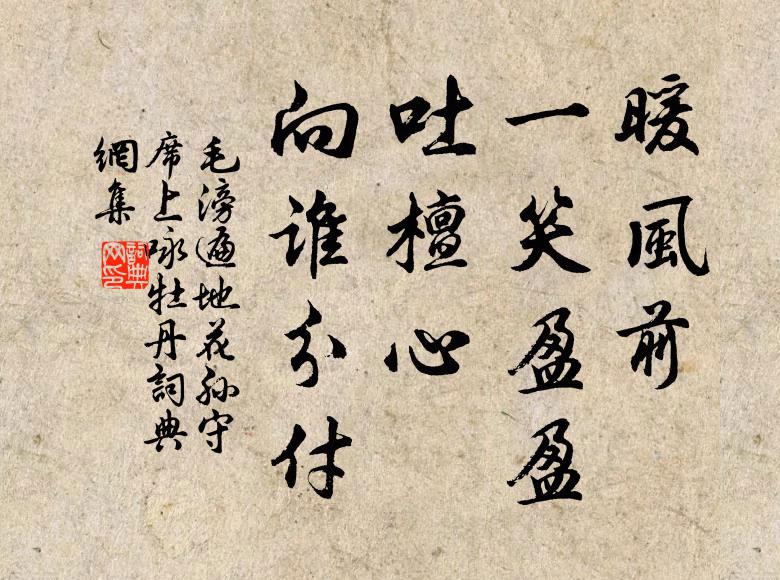 暖風前
一笑盈盈
吐檀心
向誰分付
毛滂遍地花孫守
席上咏牡丹詞典
網集
詞典
网印